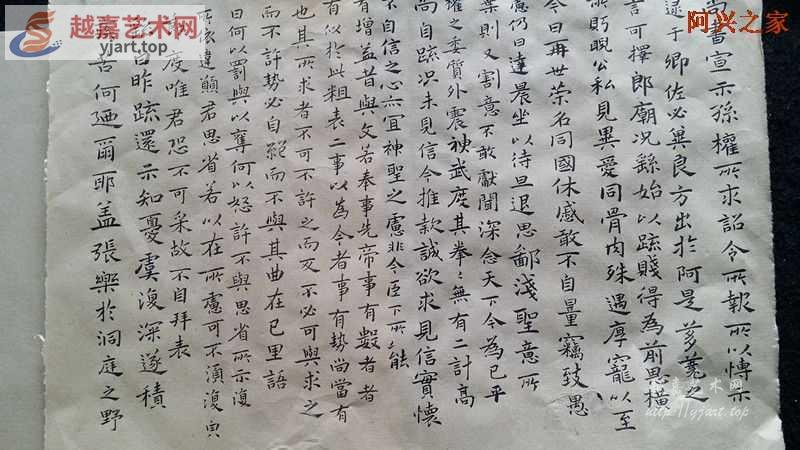 阿兴之家
越嘉艺术网
yjart.top
尚書宣示孫權所求詔令所報所以博示
逮于卿佐必冀良方出於阿是芻蕘之
言可擇郎廟況繇始以疏賤得為前恩橫
所眄睨公私見異愛同骨肉殊遇厚寵以至
今日再世榮名同國休慼敢不自量竊致愚
慮仍日達晨坐以待旦退思鄙淺聖意所
棄則又割意不敢獻聞深念天下今為已平
權之委質外震神武度其拳〻無有二計高
尚自疏況未見信今推款誠欲求見信實懷
不自信之心亦宜神聖之慮非今臣下所能
有增益昔與文若奉事先帝事有數者者
有似於此粗表二事以為今者事有勢尚當有
也其所求者不可不許之而反不必可與求之
而不許勢必自絕而不與其曲在已里語
曰何以罰與以奪何以怒許不與思省所示復
違顧君思省若以在所慮可不須復
度唯君恐不可采故不自拜表
白昨疏還示知憂虞復深遂積
苦何迺爾耶蓋張樂於洞庭之野
越嘉艺术网
http://yjart.top